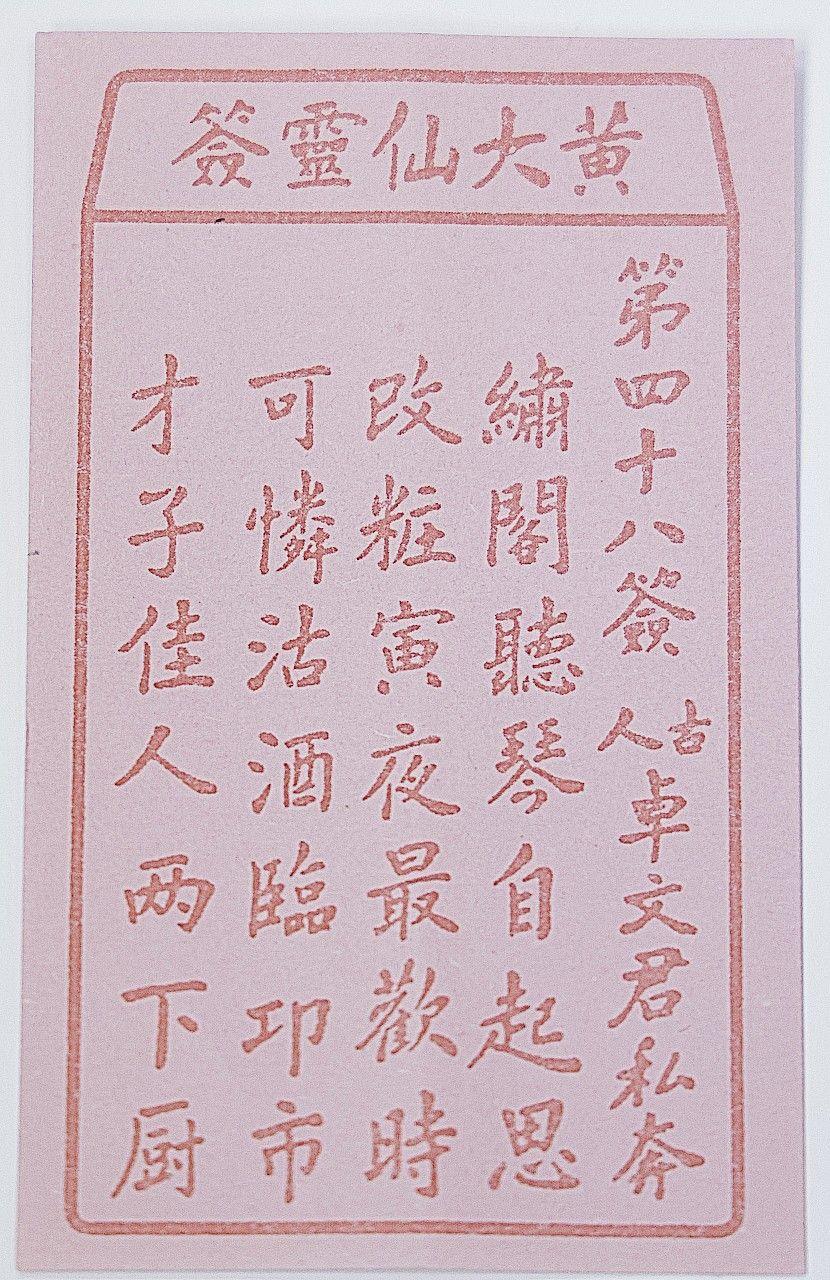 黄大仙靈簽
第四十八簽 古人 卓文君私奔
繡閣聽琴自起思
改粧寅夜最歡時
可憐沽酒臨邛市
才子佳人两下厨